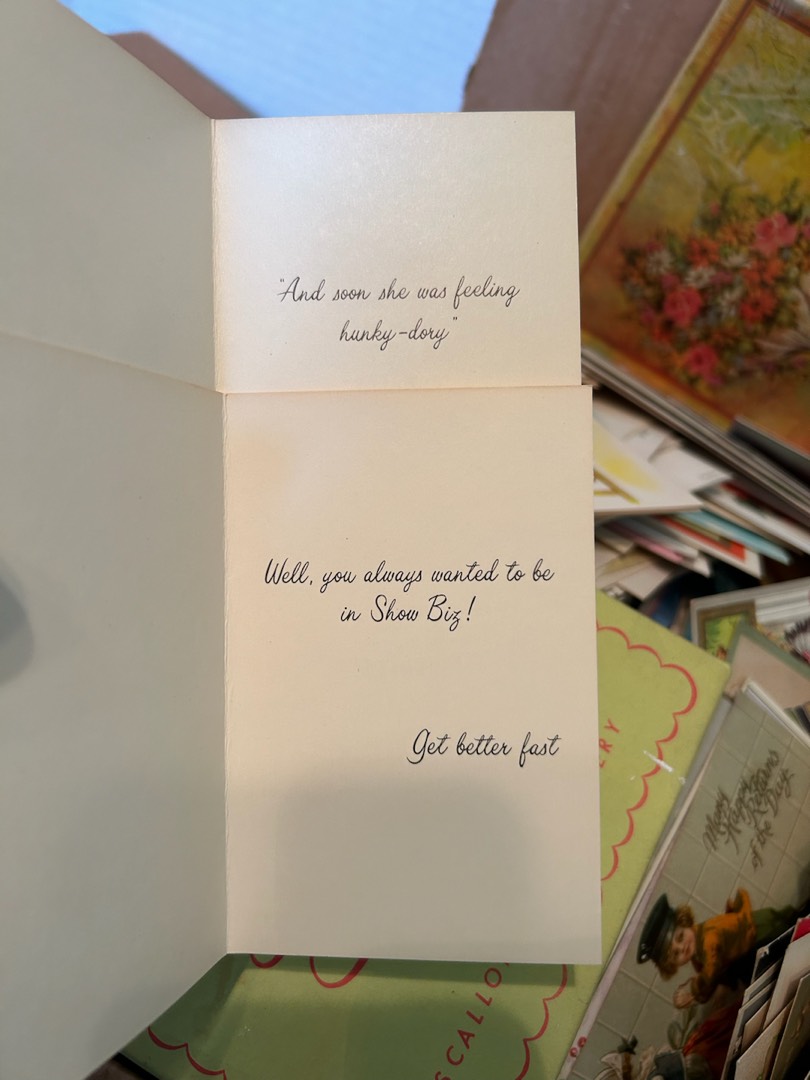 "And soon she was feeling
hunky-dory"
Well, you always wanted to be
in Show Biz!
Get better fast
RY
SCALLO
Many
Happy Returns
of the
Day